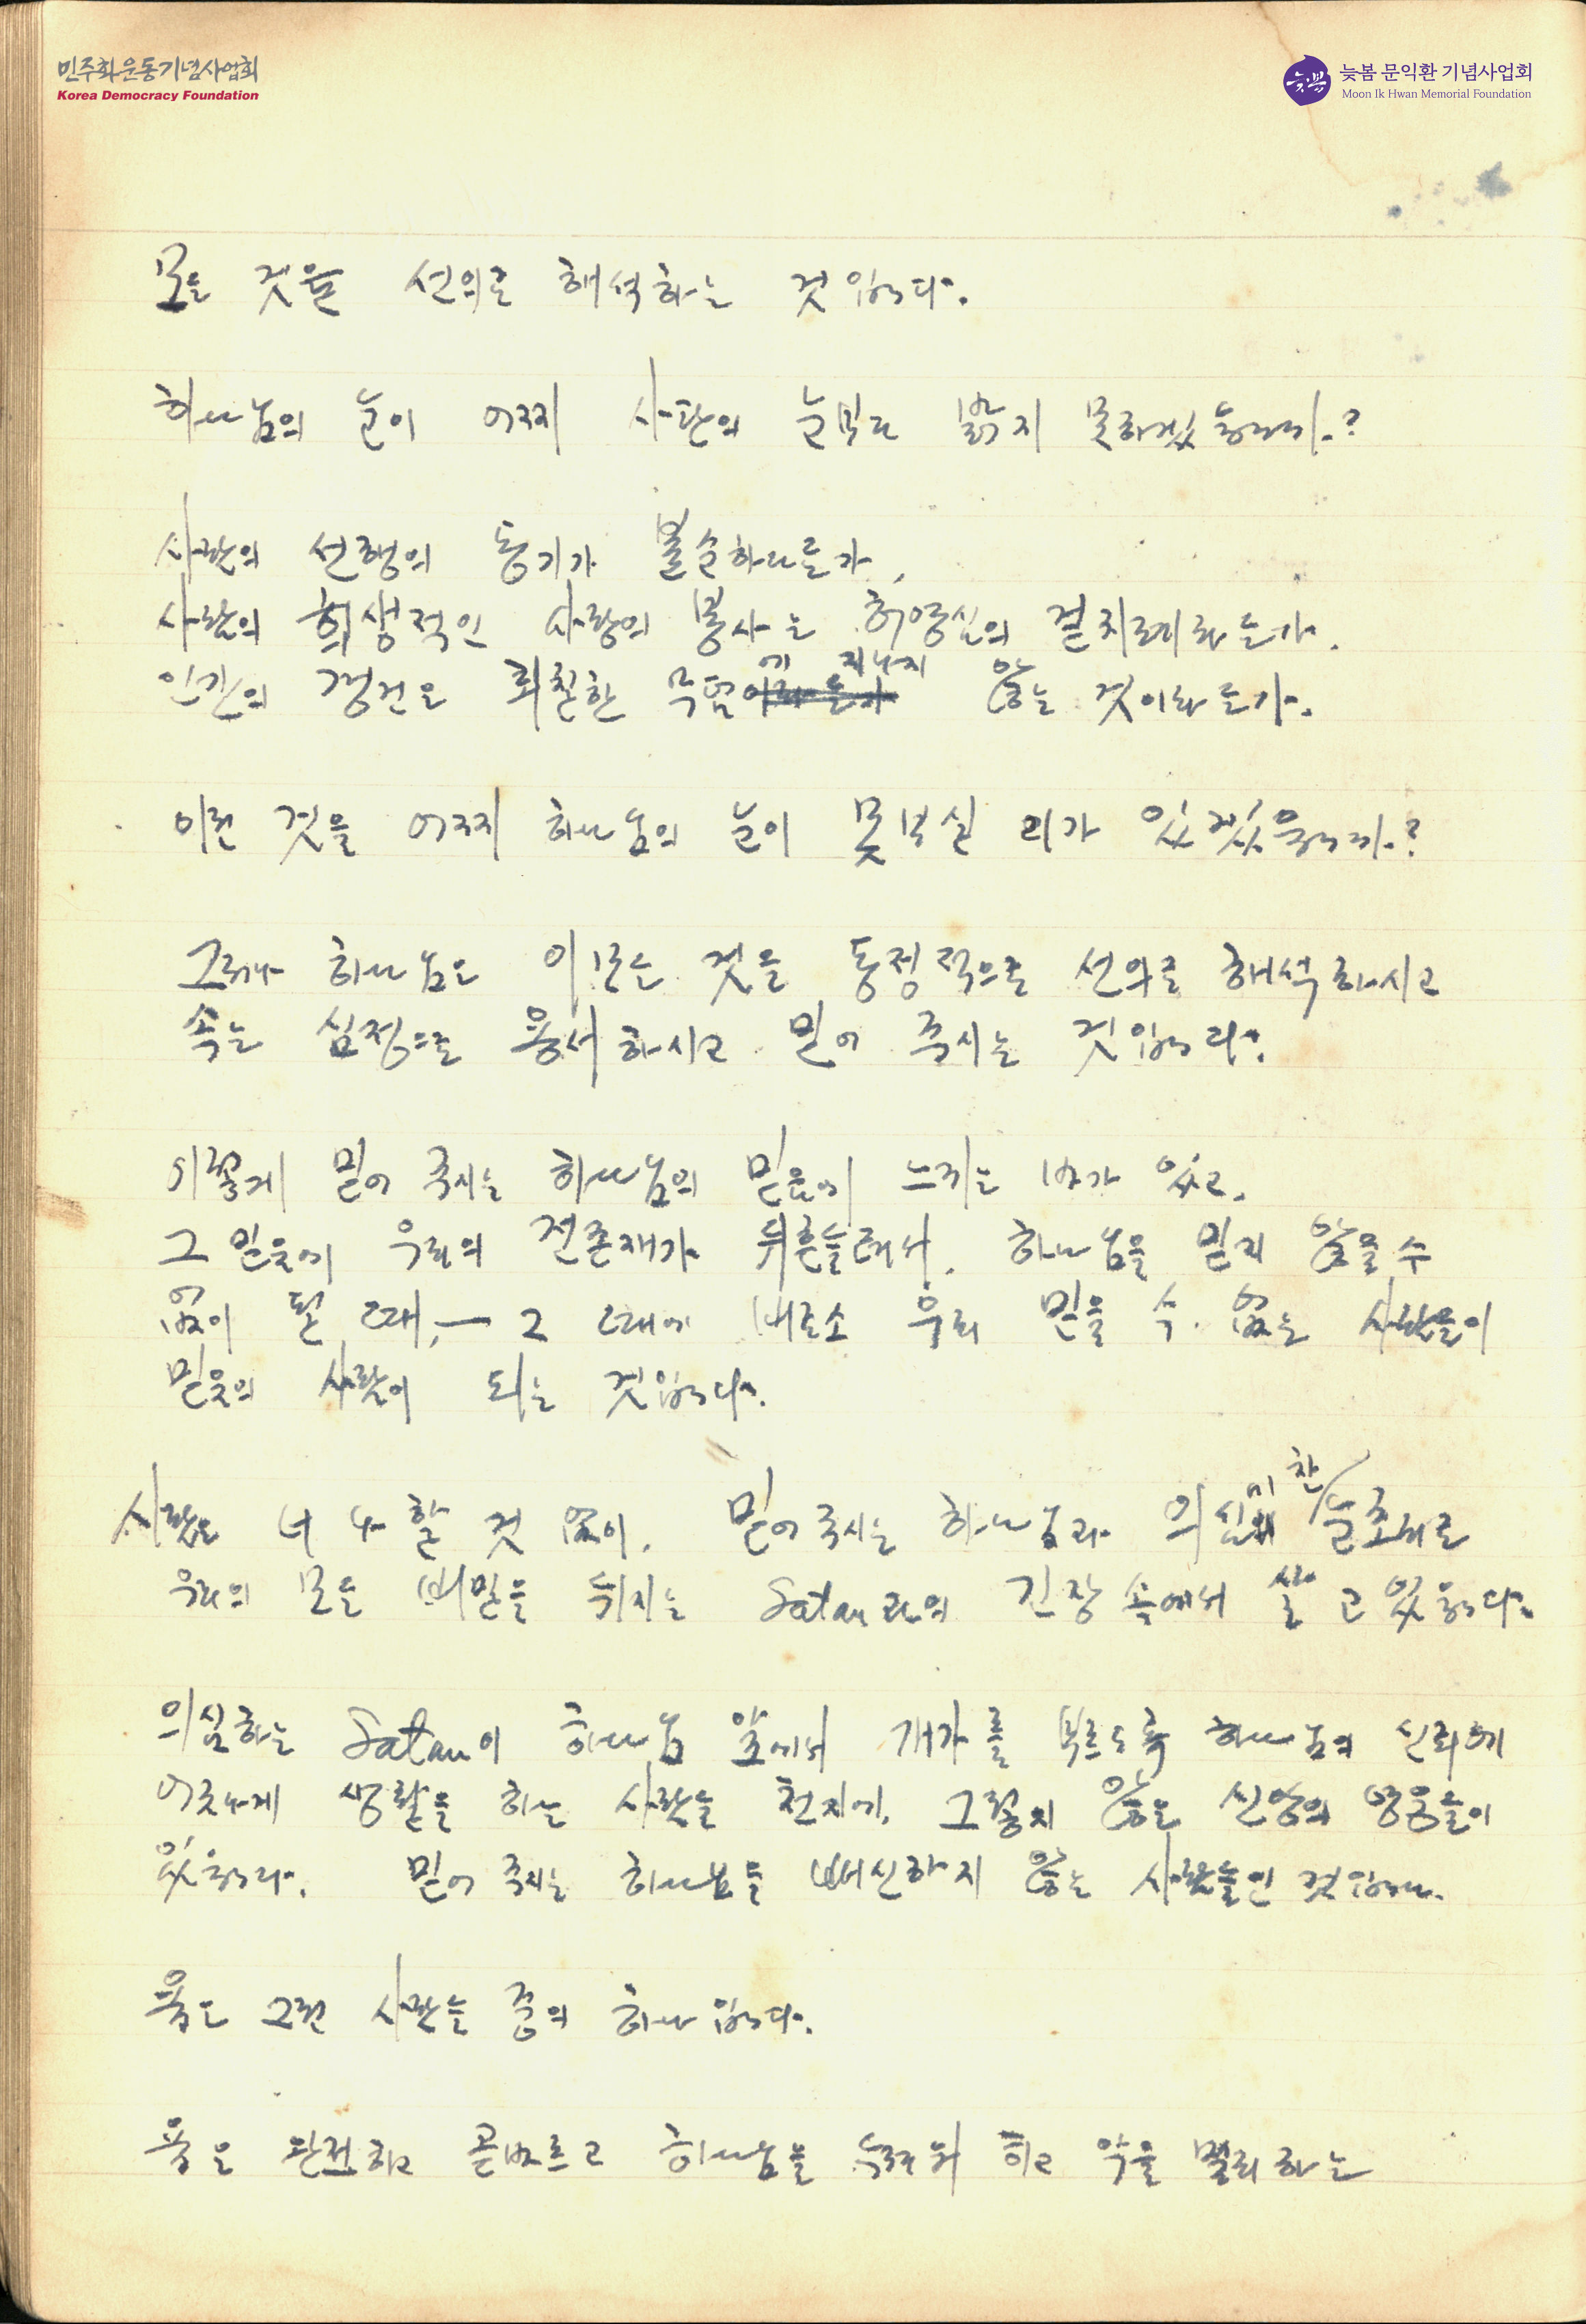 민주화운동기념사업회
Korea Democracy Foundation
늦봄
늦봄 문익환 기념사업회
Moon Ik Hwan Memorial Foundation
모든 것을 선의로 해석하는 것입니다.
하나님의 눈이 어찌 사탄의 눈보다 밝지 못하겠습니까?
사람의 선행의 동기가 불순하다든가,
사람의 희생적인 사랑의 봉사는 허영심의 겉치레라든가.
인간의 경건은 회칠한 무덤에 지나지 않는 것이라든가.
이런 것을 어찌 하나님의 눈이 못 보실 리가 있겠읍니까?
그러나 하나님은 이 모든 것을 동정적으로 선의로 해석하시고
속는 심정으로 용서하시고 믿어 주시는 것입니다.
이렇게 믿어 주시는 하나님의 믿음에 느끼는 바가 있고.
그 믿음에 우리의 전존재가 뒤흔들려서, 하나님을 믿지 않을 수
없이 될 때, — 그 때에 비로소 우리 믿을 수 없는 사람들이
믿음의 사람이 되는 것입니다.
사람은 너 나 할 것 없이, 믿어 주시는 하나님과 의심에 찬 눈초리로
우리의 모든 비밀을 뒤지는 Satan과의 긴장 속에서 살고 있읍니다.
의심하는 Satan이 하나님 앞에서 개가를 부르도록 하나님의 신뢰에
어긋나게 생활을 하는 사람들 천지에, 그렇지 않은 신앙의 영웅들이
있읍니다. 믿어 주시는 하나님을 배신하지 않는 사람들인 것입니다.
욥은 그런 사람들 중의 하나입니다.
욥은 완전하고 곧바르고 하나님을 두려워 하고 악을 멀리 하는